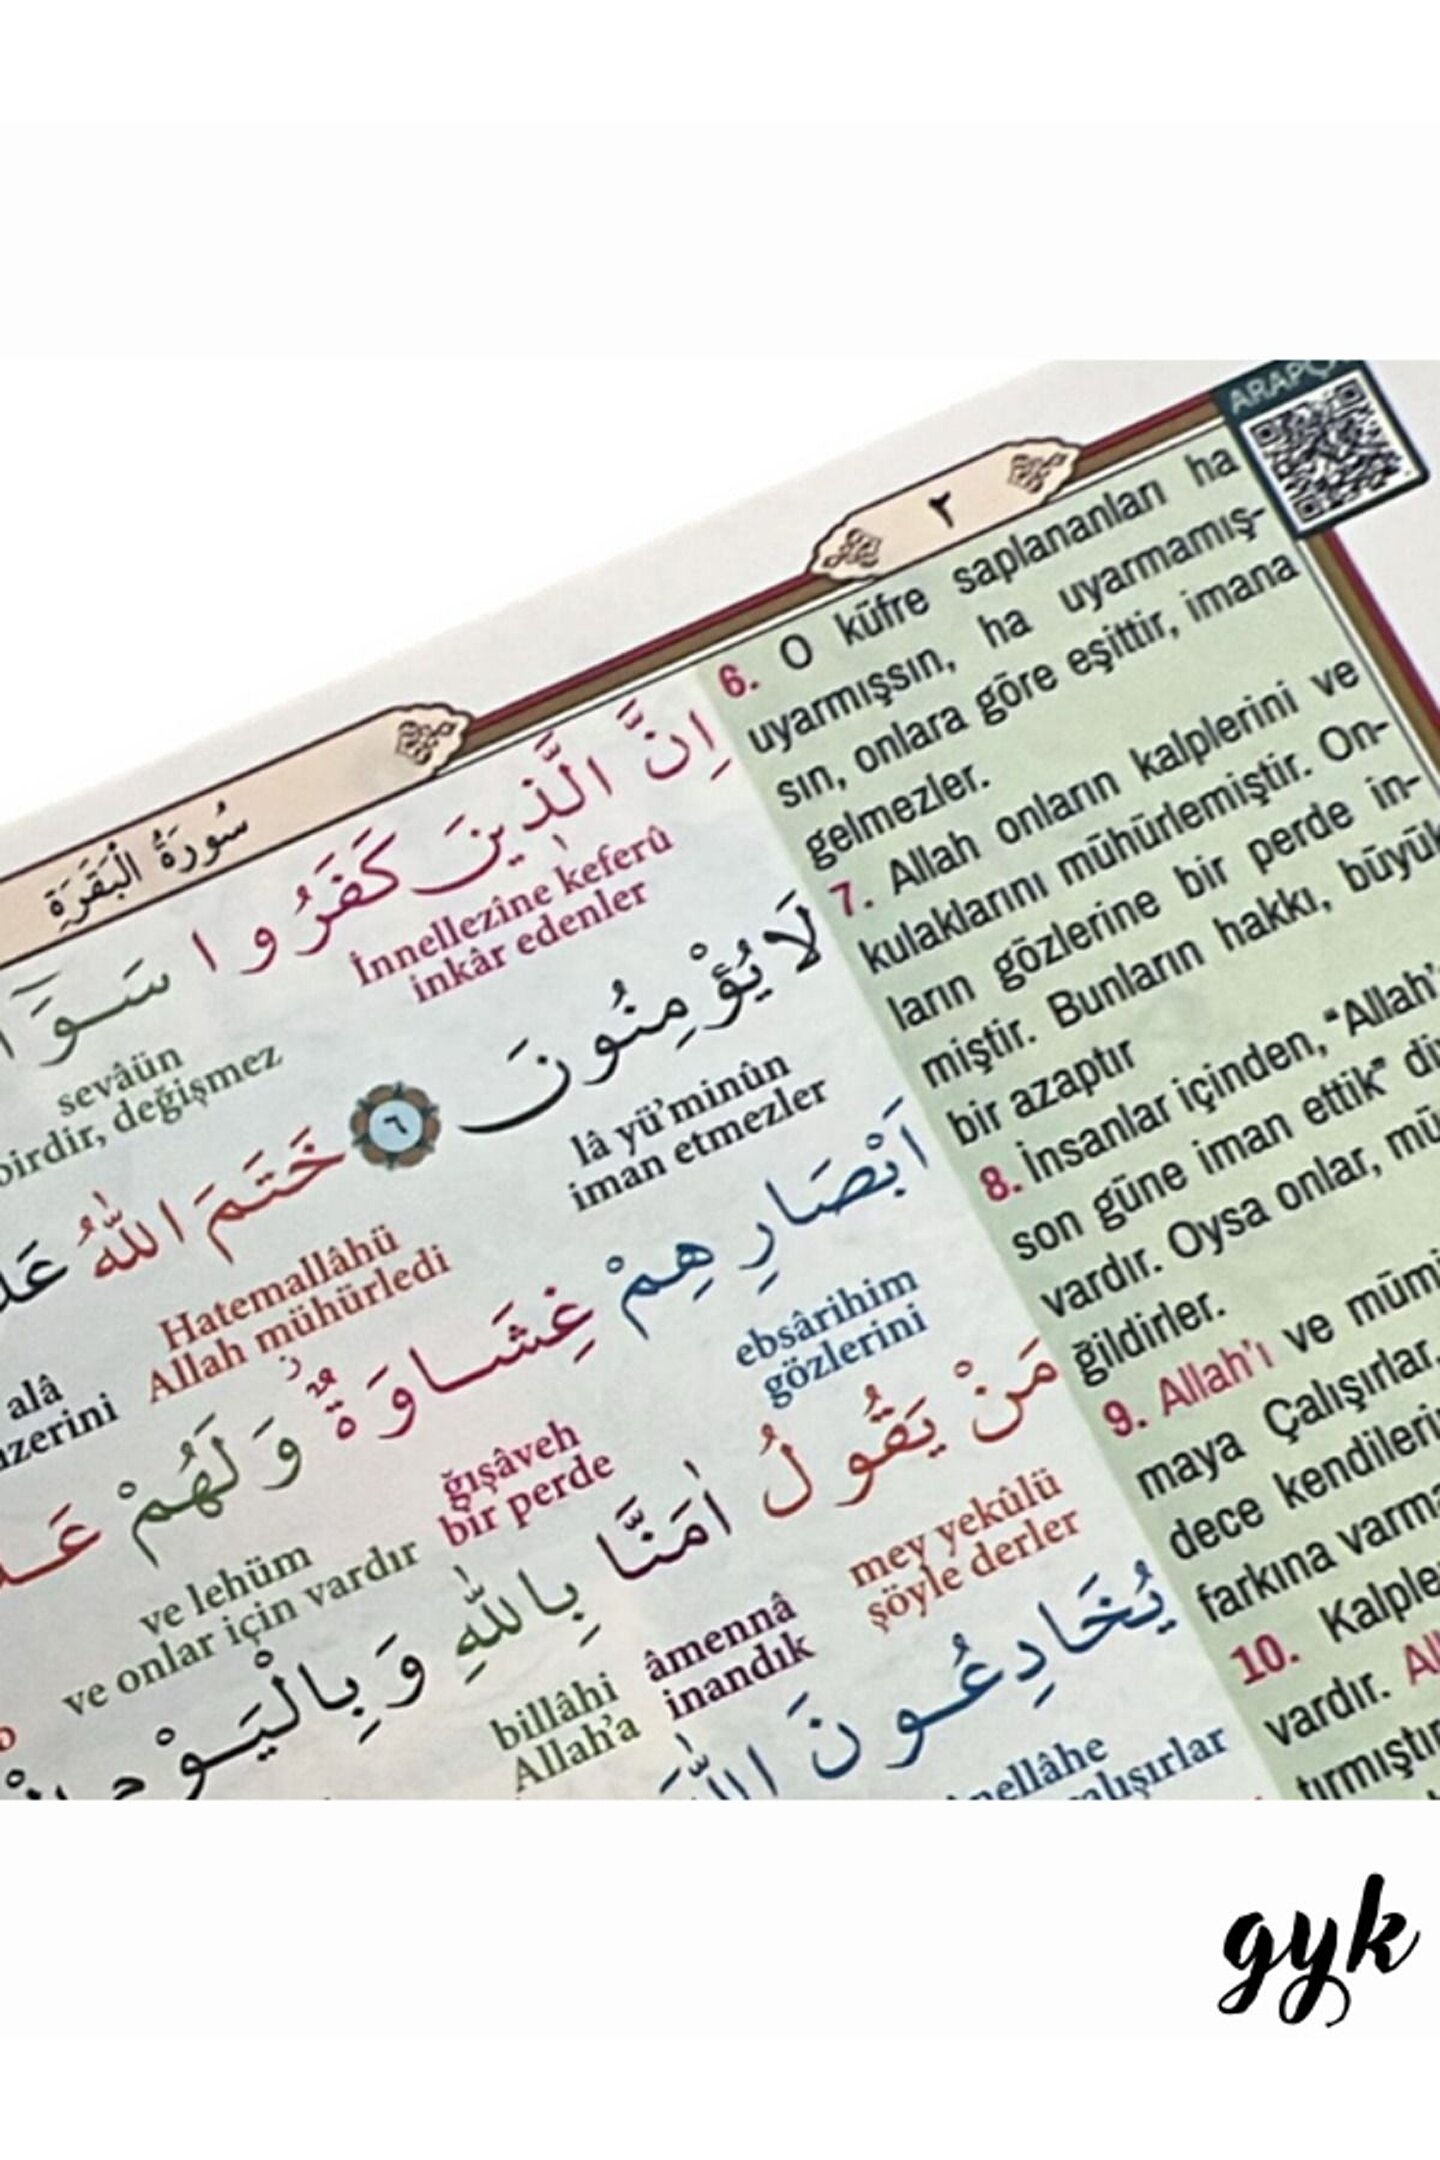 ARAPÇA
٢
سُورَةُ الْبَقَرَةِ
اِنَّ الَّذٖينَ كَفَرُوا
İnnellezîne keferû
inkâr edenler
sevâün
birdir, değişmez
لَا يُؤْمِنُونَ ٦ خَتَمَ اللّٰهُ
lâ yü’minûn
iman etmezler
Hatemallâhü
Allah mühürledi
alâ
üzerini
اَبْصَارِهِمْ غِشَاوَةٌ وَلَهُمْ
ebsârihim
gözlerini
ğışâveh
bir perde
ve lehüm
ve onlar için vardır
مَنْ يَقُولُ اٰمَنَّا بِاللّٰهِ وَبِالْيَوْمِ
mey yekûlü
şöyle derler
âmennâ
inandık
billâhi
Allah’a
يُخَادِعُونَ اللّٰهَ
6. O küfre saplananları ha
uyarmışsın, ha uyarmamış-
sın, onlara göre eşittir, imana
gelmezler.
7. Allah onların kalplerini ve
kulaklarını mühürlemiştir. On-
ların gözlerine bir perde in-
miştir. Bunların hakkı, büyük
bir azaptır
8. İnsanlar içinden, “Allah’
son güne iman ettik”
vardır. Oysa onlar,
ğildirler.
9. Allah’ı ve
maya Çalışırlar,
dece
farkına
10.
vardır.
gyk